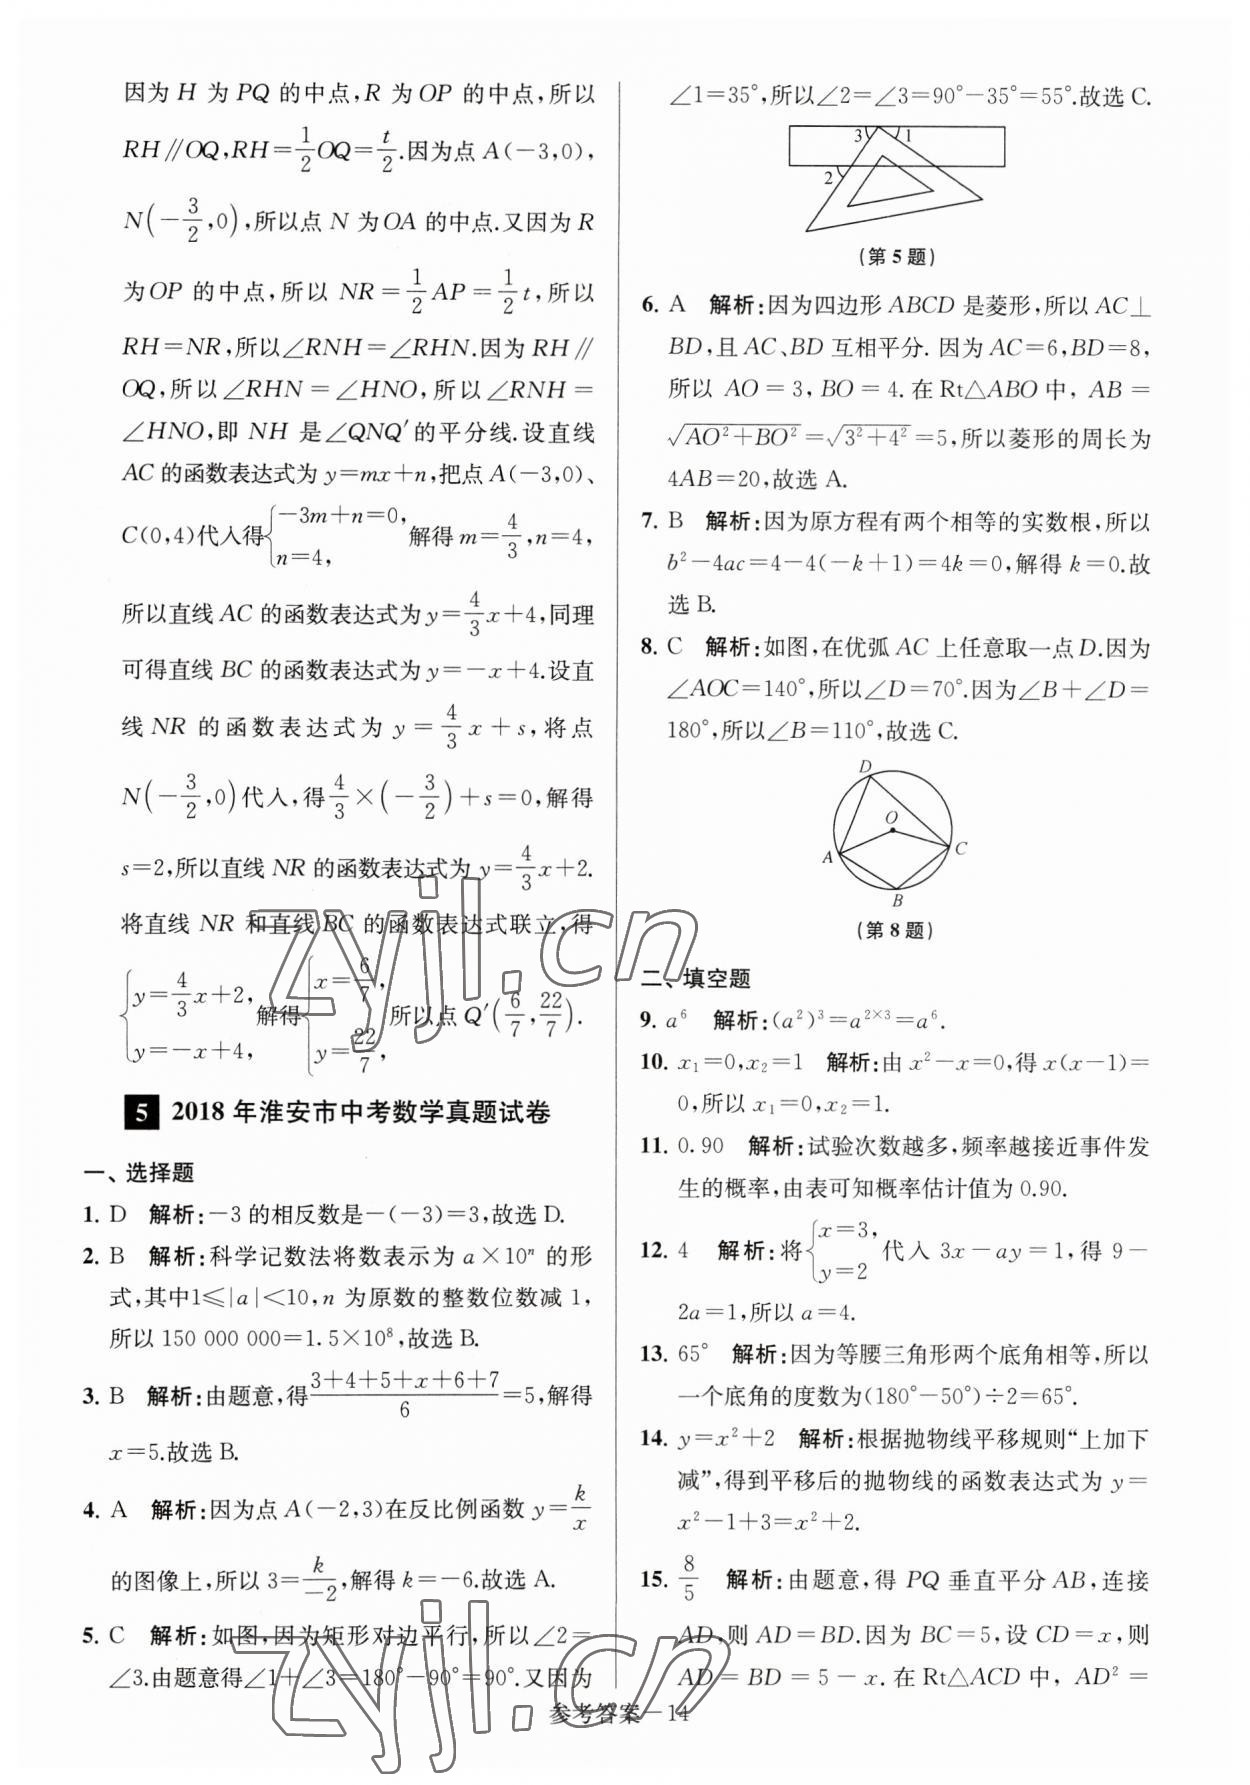 因为 H 为 PQ 的中点,R 为 OP 的中点,所以
RH∥OQ,RH=\frac{1}{2}OQ=\frac{t}{2}.因为点 A(-3,0),
N(-\frac{3}{2},0),所以点 N 为 OA 的中点.又因为 R
为 OP 的中点,所以 NR=\frac{1}{2}AP=\frac{1}{2}t,所以
RH=NR,所以∠RNH=∠RHN.因为 RH∥
OQ,所以∠RHN=∠HNO,所以∠RNH=
∠HNO,即 NH 是∠QNQ′的平分线.设直线
AC 的函数表达式为 y=mx+n,把点 A(-3,0)、
C(0,4)代入得{-3m+n=0, n=4, 解得 m=\frac{4}{3},n=4,
所以直线 AC 的函数表达式为 y=\frac{4}{3}x+4,同理
可得直线 BC 的函数表达式为 y=-x+4.设直
线 NR 的函数表达式为 y=\frac{4}{3}x+s,将点
N(-\frac{3}{2},0)代入,得\frac{4}{3}×(-\frac{3}{2})+s=0,解得
s=2,所以直线 NR 的函数表达式为 y=\frac{4}{3}x+2.
将直线 NR 和直线 BC 的函数表达式联立,得
{y=\frac{4}{3}x+2, y=-x+4, 解得{x=\frac{6}{7}, y=\frac{22}{7}, 所以点 Q′(\frac{6}{7},\frac{22}{7}).
5 2018 年淮安市中考数学真题试卷
一、选择题
1. D 解析:-3 的相反数是-(-3)=3,故选 D.
2. B 解析:科学记数法将数表示为 a×10ⁿ 的形
式,其中1≤|a|<10,n 为原数的整数位数减 1,
所以 150 000 000=1.5×10⁸,故选 B.
3. B 解析:由题意,得\frac{3+4+5+x+6+7}{6}=5,解得
x=5.故选 B.
4. A 解析:因为点 A(-2,3)在反比例函数 y=\frac{k}{x}
的图像上,所以 3=\frac{k}{-2},解得 k=-6.故选 A.
5. C 解析:如图,因为矩形对边平行,所以∠2=
∠3.由题意得∠1+∠3=180°-90°=90°.又因为
∠1=35°,所以∠2=∠3=90°-35°=55°.故选 C.
3 1
2
(第 5 题)
6. A 解析:因为四边形 ABCD 是菱形,所以 AC⊥
BD,且 AC、BD 互相平分. 因为 AC=6,BD=8,
所以 AO=3,BO=4.在 Rt△ABO 中,AB=
\sqrt{AO²+BO²}=\sqrt{3²+4²}=5,所以菱形的周长为
4AB=20,故选 A.
7. B 解析:因为原方程有两个相等的实数根,所以
b²-4ac=4-4(-k+1)=4k=0,解得 k=0.故
选 B.
8. C 解析:如图,在优弧 AC 上任意取一点 D.因为
∠AOC=140°,所以∠D=70°.因为∠B+∠D=
180°,所以∠B=110°,故选 C.
D
O
A
C
B
(第 8 题)
二、填空题
9. a⁶ 解析:(a²)³=a²ˣ³=a⁶.
10. x₁=0,x₂=1 解析:由 x²-x=0,得 x(x-1)=
0,所以 x₁=0,x₂=1.
11. 0.90 解析:试验次数越多,频率越接近事件发
生的概率,由表可知概率估计值为 0.90.
12. 4 解析:将{x=3, y=2 代入 3x-ay=1,得 9-
2a=1,所以 a=4.
13. 65° 解析:因为等腰三角形两个底角相等,所以
一个底角的度数为(180°-50°)÷2=65°.
14. y=x²+2 解析:根据抛物线平移规则“上加下
减”,得到平移后的抛物线的函数表达式为 y=
x²-1+3=x²+2.
15. \frac{8}{5} 解析:由题意,得 PQ 垂直平分 AB,连接
AD,则 AD=BD.因为 BC=5,设 CD=x,则
AD=BD=5-x.在 Rt△ACD 中,AD²=
参考答案-14
zyjl.cn
zyjl.cn